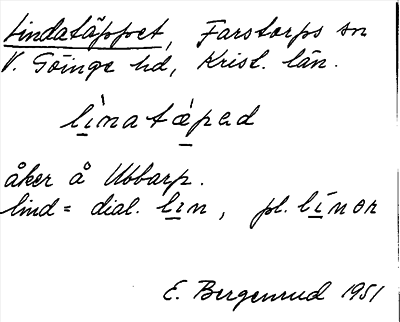 Lindatäppet, Farstorps sn
V. Göinge hd, Krist. län.
lìnatæ̀pəd
åker å Ubbarp.
lind = dial. lin, pl. línər
E. Bergenrud 1951